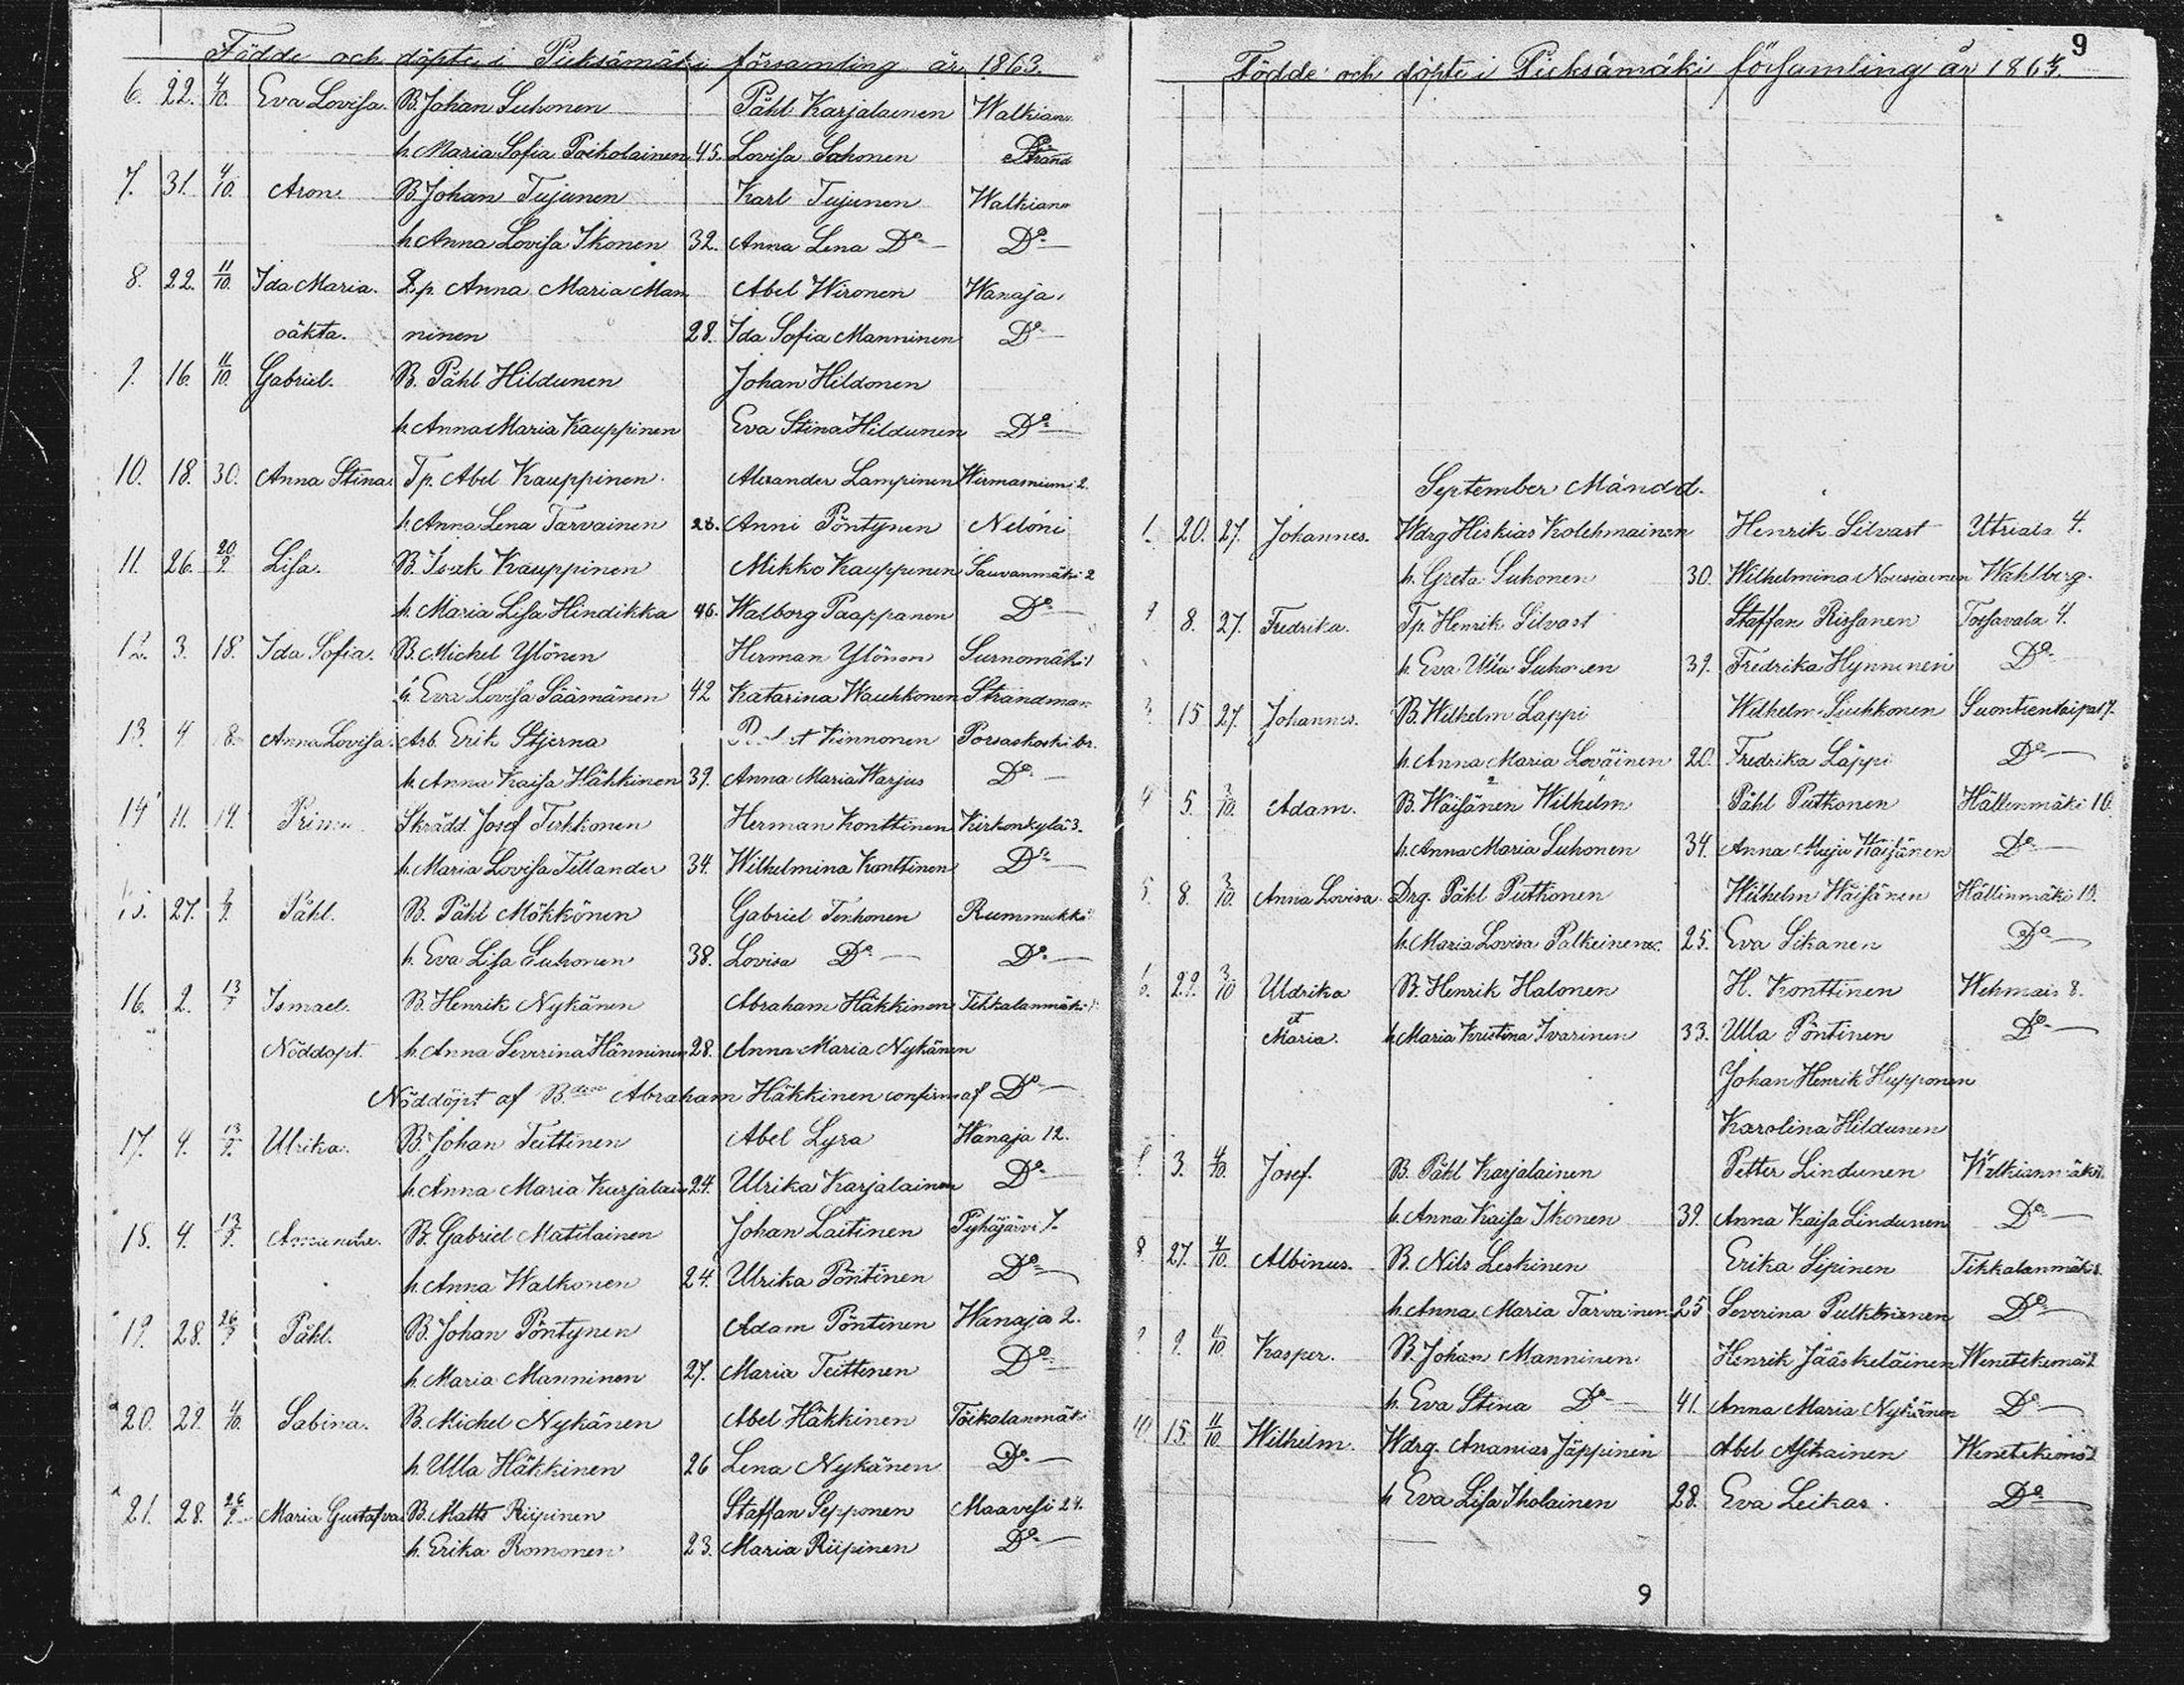 Födde och döpte i Pieksämäki församling år 1863.
6. 22. 4/10. Eva Lovisa. B. Johan Suhonen Påhl Karjalainen Walkian
h. Maria Sofia Poikolainen 45. Lovisa Sohonen Strand
7. 31. 4/10. Aron. B. Johan Tujunen Karl Tujunen Walkian
h. Anna Lovisa Ikonen 32. Anna Lena Do Do
8. 22. 11/10. Ida Maria. Qp. Anna Maria Man Abel Wironen Wanaja
oäkta. ninen 28. Ida Sofia Manninen Do
9. 16. 11/10. Gabriel. B. Påhl Hildunen Johan Hildonen
h. Anna Maria Kauppinen Eva Stina Hildunen Do
10. 18. 30. Anna Stina Tp. Abel Kauppinen Alexander Lampinen 2.
h. Anna Lena Tarvainen 28. Anni Pöntynen Nelöni
11. 26. 20/9 Lisa. B. Isak Kauppinen Mikko Kauppinen Sauvanmäki 2
h. Maria Lisa Hindikka 46. Walborg Paappanen Do
12. 3. 18. Ida Sofia. B. Michel Ylönen Herman Ylönen Surnomäki 1
h. Eva Lovisa Säämänen 42 Katarina Wauhkonen Strandman
13. 4 8. Anna Lovisa. Arb. Erik Stjerna Kinnonen Porsaskoski br.
h. Anna Kaisa Hähkinen 39. Anna Maria Warjus Do
14 11. 19. Skrädd. Josef Tirkkonen Herman Konttinen Kirkonkylä 3.
h. Maria Lovisa Tillander 34. Wilhelmina Konttinen Do
15. 27. Påhl. B. Påhl Mökkönen Gabriel Tenhonen Rummukka
h. Eva Lisa Suhonen 38. Lovisa Do Do
16. 2. 13/9 Ismael. B. Henrik Nykänen Abraham Häkkinen Tikkalanmäki
Nöddöpt. h. Anna Severina Hänninen 28. Anna Maria Nykänen
Nöddöpt af Abraham Häkkinen confirm af Do
17. 4. 13/9. Ulrika. B. Johan Teittinen Abel Lyra Wanaja 12.
h. Anna Maria Karjalain 24. Ulrika Karjalainen Do
18. 4. 13/9. B. Gabriel Matilainen Johan Laitinen Pyhäjärvi 7.
h. Anna Walkonen 24. Ulrika Pöntinen Do
19. 28. 26/9 Påhl. B. Johan Pöntynen Adam Pöntinen Wanaja 2.
h. Maria Manninen 27. Maria Teittinen Do
20. 29. 4/10. Sabina. B. Michel Nykänen Abel Häkkinen Töikalanmäki
h. Ulla Häkkinen 26 Lena Nykänen Do
21. 28. 26/9. Maria Gustafva B. Matts Riipinen Staffan Sepponen Maavesi 24.
h. Erika Romonen 23. Maria Riipinen Do
9
Födde och döpte i Pieksämäki församling år 1863.
September Månad.
1. 20. 27. Johannes. Wdrg Hiskias Kolehmainen Henrik Silvast Utriala 4.
h. Greta Suhonen 30. Wilhelmina Nousiainen Wahlberg.
8. 27. Fredrika. Tp. Henrik Silvast Staffan Rissanen Toisavala 4.
h. Eva Ulla Suhonen 39. Fredrika Hynninen Do
3. 15 27. Johannes. B. Wilhelm Lappi Wilhelm Suhkonen Suontientaipal 7.
h. Anna Maria Loväinen 20. Fredrika Lappi Do
4 5. 3/10. Adam. B. Waisänen Wilhelm Påhl Putkonen Hällinmäki 10.
h. Anna Maria Suhonen 34. Anna Maja Waisänen Do
5. 8. 3/10. Anna Lovisa. Drg. Påhl Puttonen Wilhelm Waisänen Hällinmäki 10.
h. Maria Lovisa Palkeinen 25. Eva Sikanen Do
6. 29. 3/10 Uldrika B. Henrik Halonen H. Konttinen Wehmais 8.
et
Maria. h. Maria Kristina Ivarinen 33. Ulla Pöntinen Do
Johan Henrik Hupponen
Karolina Hildunen
3. 4/10. Josef. B. Påhl Karjalainen Petter Lindunen Walkianmäki
h. Anna Kaisa Ikonen 39. Anna Kaisa Lindunen Do
8 27. 4/10. Albinus. B. Nils Leskinen Erika Sipinen Tikkalanmäki
h. Anna Maria Tarvainen 25 Severina Pulkkinen Do
9. 11/10 Kasper. B. Johan Manninen Henrik Jääskeläinen Wenetekemä 2
h. Eva Stina Do 41. Anna Maria Nykänen Do
10. 15. 11/10 Wilhelm. Wdrg. Ananias Jäppinen Abel Asikainen Wenetekemä 2
h Eva Lisa Iholainen 28. Eva Leikas. Do
9